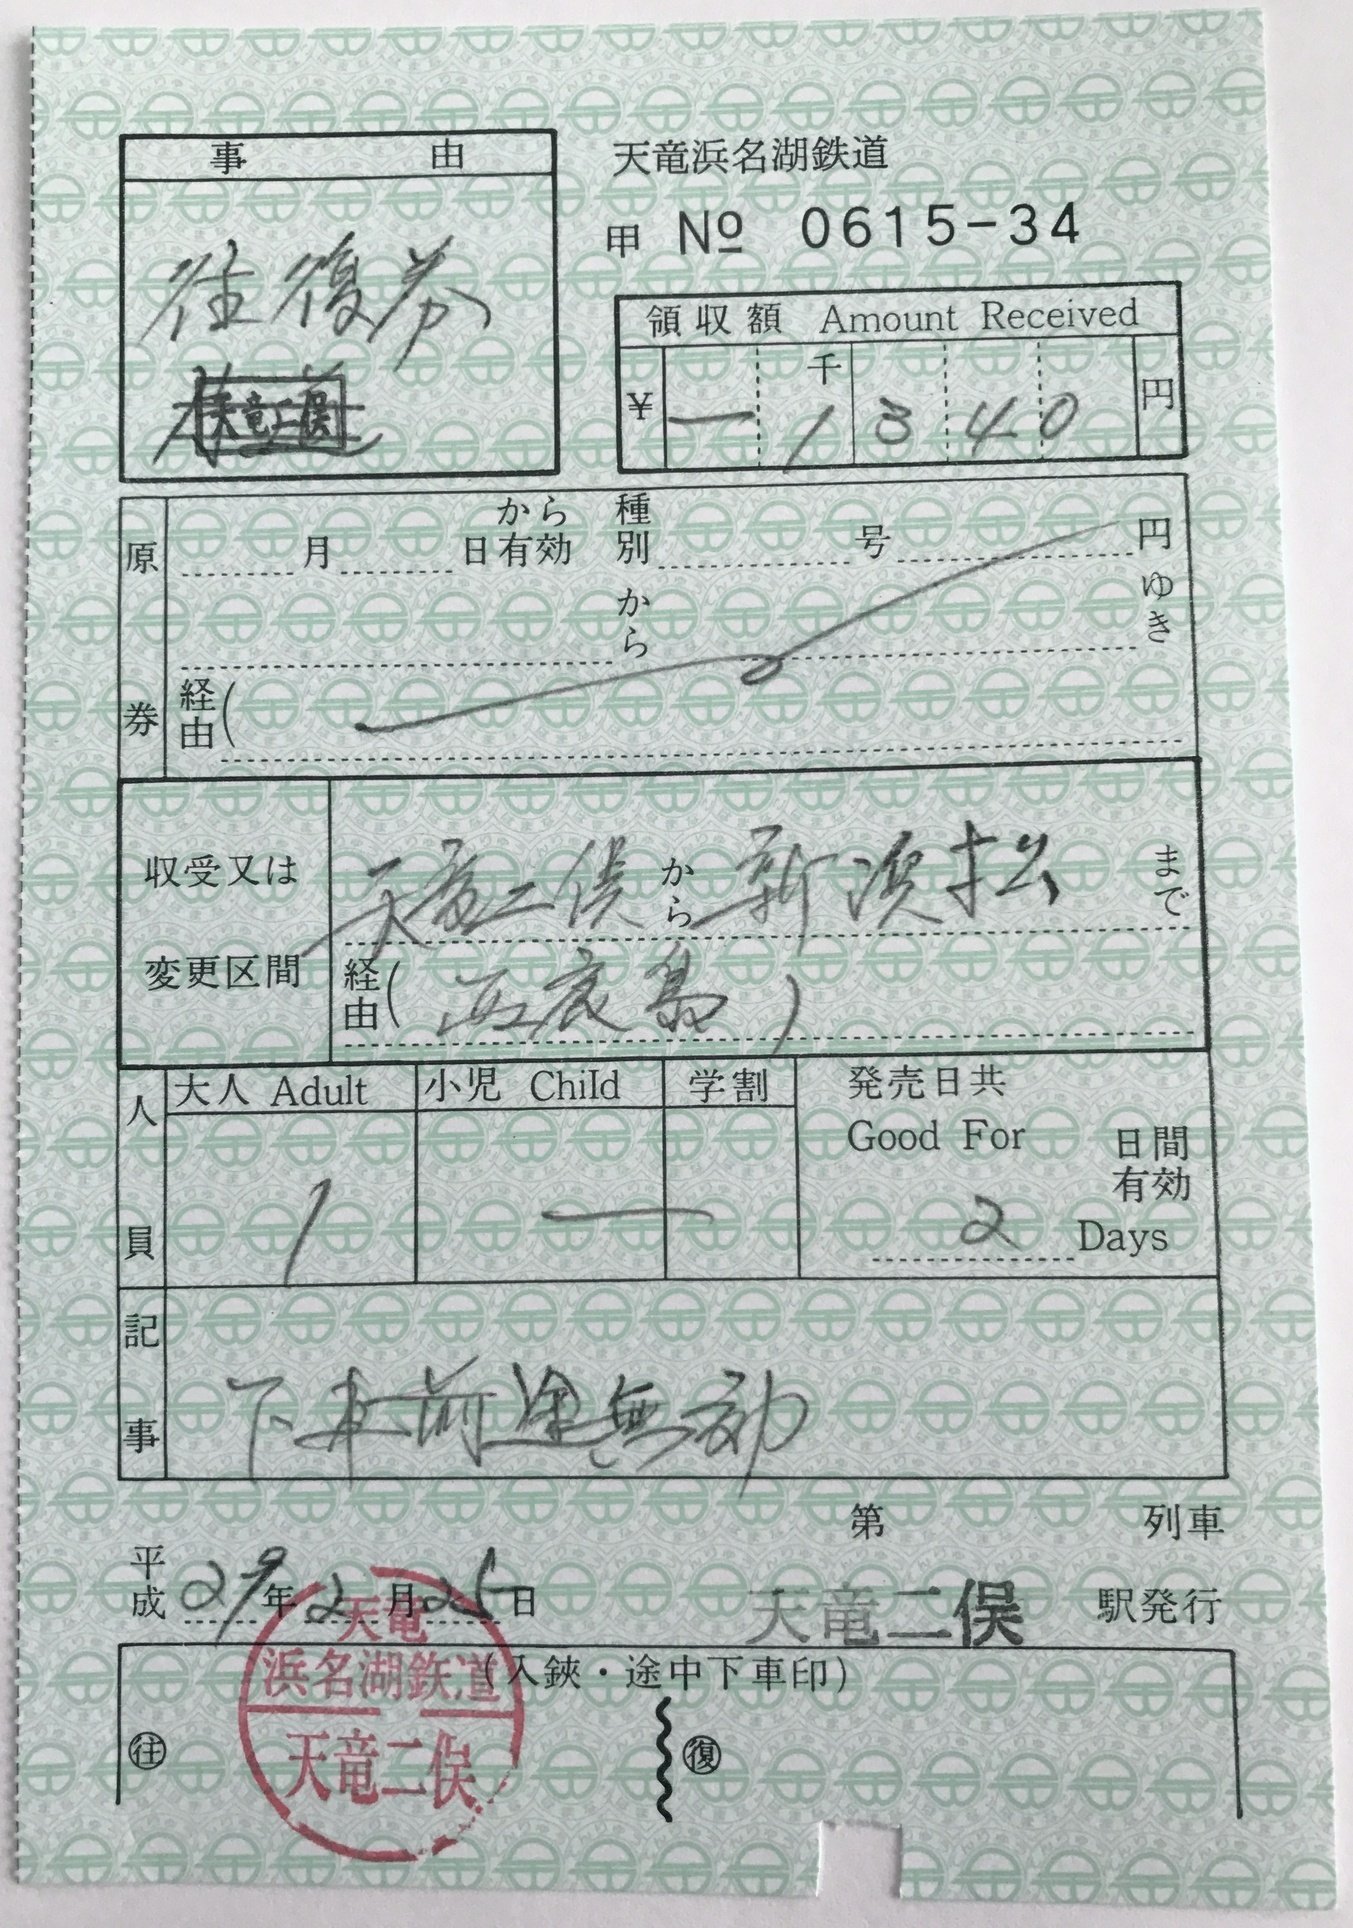 事由
天竜浜名湖鉄道
甲 No 0615-34
往復券
天竜二俣
領収額 Amount Received
千
¥ 一 1 3 4 0 円
原券
月 日から有効 種別 号 円
から ゆき
経由(
収受又は変更区間
天竜二俣 から 新浜松 まで
経由( 西鹿島 )
人員
大人 Adult 小児 Child 学割
発売日共
Good For 日間有効
1 一 2 Days
記事
下車前途無効
第 列車
平成 29年 2月 25日 天竜二俣 駅発行
天竜
浜名湖鉄道
天竜二俣
(入鋏・途中下車印)
往 復